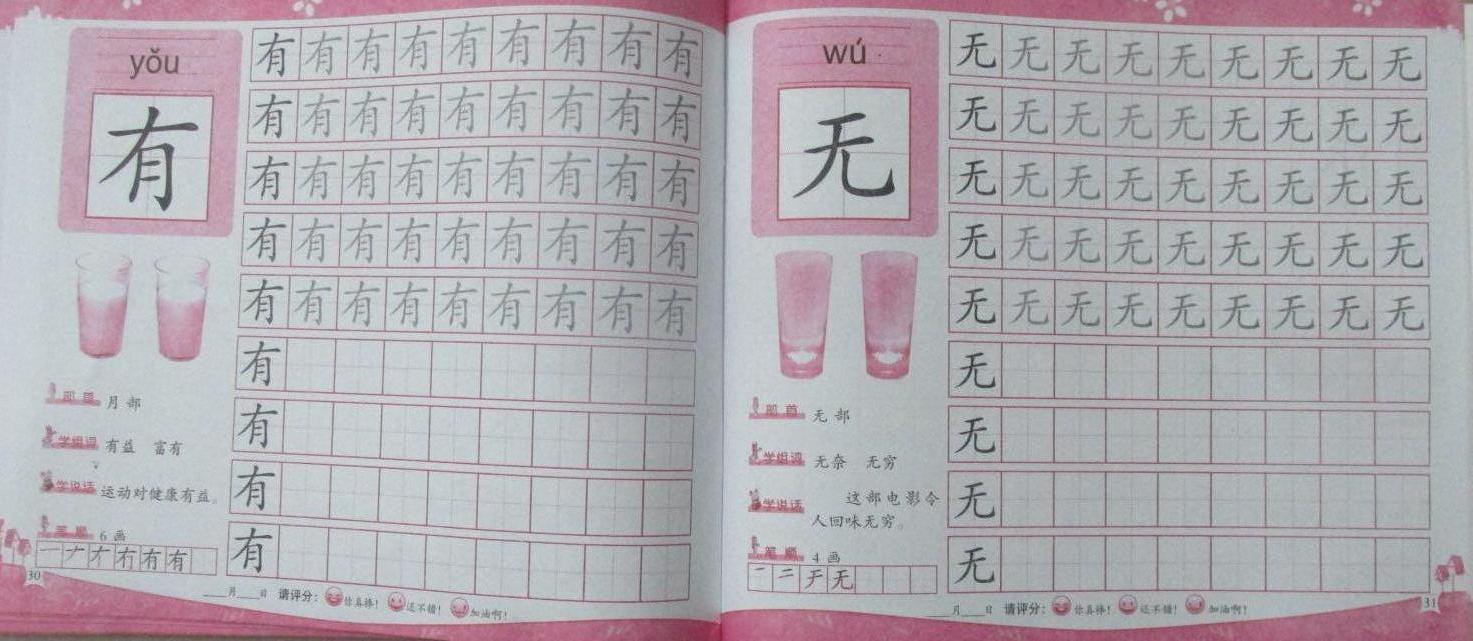 yǒu
有
有 有 有 有 有 有 有 有 有
有 有 有 有 有 有 有 有 有
有 有 有 有 有 有 有 有 有
有 有 有 有 有 有 有 有 有
有 有 有 有 有 有 有 有 有
有
有
有
有
部首 月部
学组词 有益 富有
学说话 运动对健康有益。
笔顺 6画
一 𠂇 有 有
30
月 日 请评分: 你真棒! 还不错! 加油啊!
wú
无
无 无 无 无 无 无 无 无 无
无 无 无 无 无 无 无 无 无
无 无 无 无 无 无 无 无 无
无 无 无 无 无 无 无 无 无
无 无 无 无 无 无 无 无 无
无
无
无
无
部首 无部
学组词 无奈 无穷
学说话 这部电影令
人回味无穷。
笔顺 4画
一 二 于 无
月 日 请评分: 你真棒! 还不错! 加油啊!
31